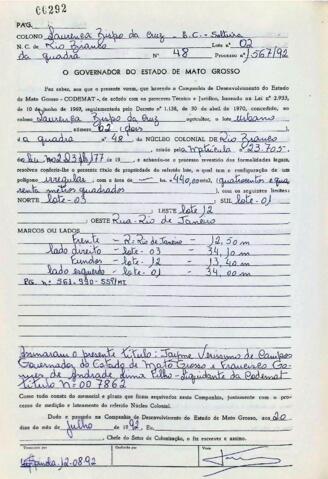 00292
PAG.
COLONO Laurença Bispo da Cruz - B.C. - Solteira
N. C. de Rio Branco Lote nº 02
da quadra Nº 48 Processo nº 1567/92
O GOVERNADOR DO ESTADO DE MATO GROSSO
Faz saber, aos que a presente virem, que havendo a Companhia de Desenvolvimento do Estado
de Mato Grosso - CODEMAT -, de acôrdo com os pareceres Técnico e Jurídico, baseando na Lei nº 2.933,
de 10 de junho de 1969, regulamentada pelo Decreto nº 1.138, de 30 de abril de 1970, concedido, ao
colono Laurença Bispo da Cruz agricultor, o lote urbano
número 02 (dois)
da quadra nº 48 do NÚCLEO COLONIAL DE Rio Branco
criado pela Matrícula 23.705.
de 19 , e achando-se o processo revestido das formalidades legais,
resolveu conferir-lhe o presente título de propriedade do referido lote, o qual tem a configuração de um
polígono irregular, com a área de has. -440,00m2 (quatrocentos e qua
renta metros quadrados) , com os seguintes limites:
NORTE lote-03 SUL lote-01
LESTE lote 12
OESTE Rua-Rio de Janeiro
MARCOS OU LADOS
Frente - R. Rio de Janeiro - 12,50 m
lado direito - lote-03 - 34,10 m
Fundos - lote-12 - 13,40 m
lado esquerdo - lote-01 - 34,00 m
Assinaram o presente título: Jayme Verissimo de Campos
Governador do Estado de Mato Grosso e Francisco Go
mes de Andrade Lima Filho - liquidante da Codemat
título Nº 007862
Como tudo consta do memorial e planta que ficam arquivados nesta Companhia, juntamente com o pro-
cesso de medição e loteamento do referido Núcleo Colonial.
Dado e passado na Companhia de Desenvolvimento do Estado de Mato Grosso, aos 20
dias do mês de julho de 1992. Eu,
Chefe do Setor de Colonização, o fiz escrever e assino.
12.08.92